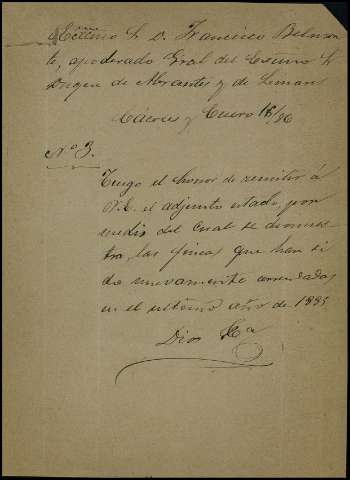 Excmo Sr D. Francisco Belmon
te, apoderado Gral del Excmo Sr
Duque de Abrantes y de Linares
Cáceres y Enero 18/96
Nº 3.
Tengo el honor de remitir á
V.E. el adjunto estado, por
medio del cual se demues
tra, las fincas que han si
do nuevamente arrendadas
en el ultimo año de 1895
Dios &a